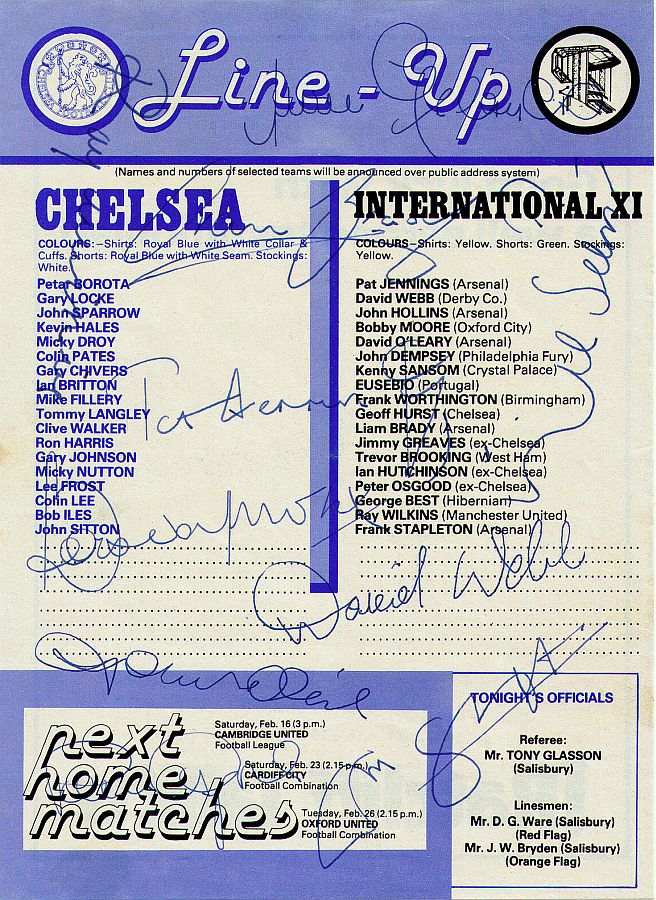 Line-Up
(Names and numbers of selected teams will be announced over public address system)
CHELSEA
COLOURS:–Shirts: Royal Blue with White Collar &
Cuffs. Shorts: Royal Blue with White Seam. Stockings:
White.
Petar BOROTA
Gary LOCKE
John SPARROW
Kevin HALES
Micky DROY
Colin PATES
Gary CHIVERS
Ian BRITTON
Mike FILLERY
Tommy LANGLEY
Clive WALKER
Ron HARRIS
Gary JOHNSON
Micky NUTTON
Lee FROST
Colin LEE
Bob ILES
John SITTON
INTERNATIONAL XI
COLOURS–Shirts: Yellow. Shorts: Green. Stockings:
Yellow.
Pat JENNINGS (Arsenal)
David WEBB (Derby Co.)
John HOLLINS (Arsenal)
Bobby MOORE (Oxford City)
David O'LEARY (Arsenal)
John DEMPSEY (Philadelphia Fury)
Kenny SANSOM (Crystal Palace)
EUSEBIO (Portugal)
Frank WORTHINGTON (Birmingham)
Geoff HURST (Chelsea)
Liam BRADY (Arsenal)
Jimmy GREAVES (ex-Chelsea)
Trevor BROOKING (West Ham)
Ian HUTCHINSON (ex-Chelsea)
Peter OSGOOD (ex-Chelsea)
George BEST (Hibernian)
Ray WILKINS (Manchester United)
Frank STAPLETON (Arsenal)
David Webb
next
home
matches
Saturday, Feb. 16 (3 p.m.)
CAMBRIDGE UNITED
Football League
Saturday, Feb. 23 (2.15 p.m.)
CARDIFF CITY
Football Combination
Tuesday, Feb. 26 (2.15 p.m.)
OXFORD UNITED
Football Combination
TONIGHT'S OFFICIALS
Referee:
Mr. TONY GLASSON
(Salisbury)
Linesmen:
Mr. D. G. Ware (Salisbury)
(Red Flag)
Mr. J. W. Bryden (Salisbury)
(Orange Flag)